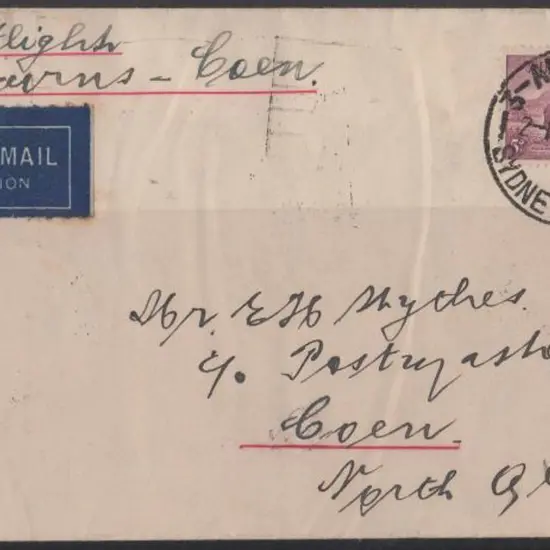 Flight
Cairns - Coen.
MAIL
ION
3-N
SYDNE
Mr. E H
c/o Postmaste
Coen.
North Q